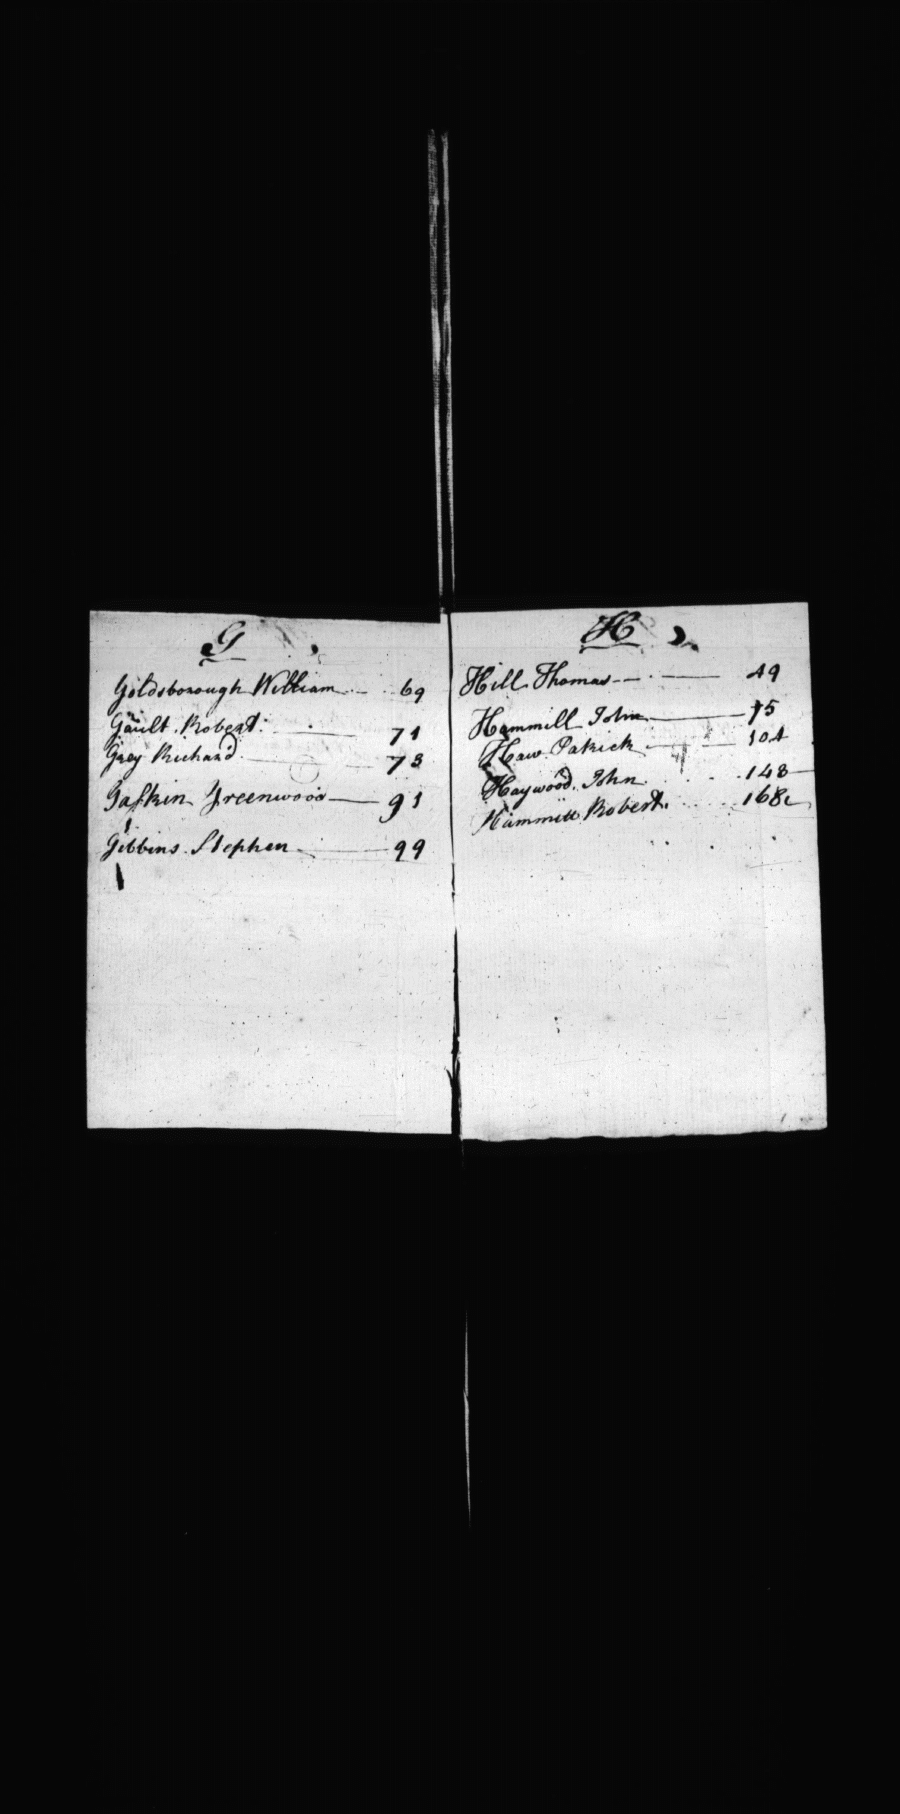 G
Goldsborough William 69
Gault Robert 71
Grey Richard 73
Gaskin Greenwood 91
Gibbins Stephen 99
H
Hill Thomas 49
Hammill John 75
Haw Patrick 104
Haywood John 148
Hammill Robert 168